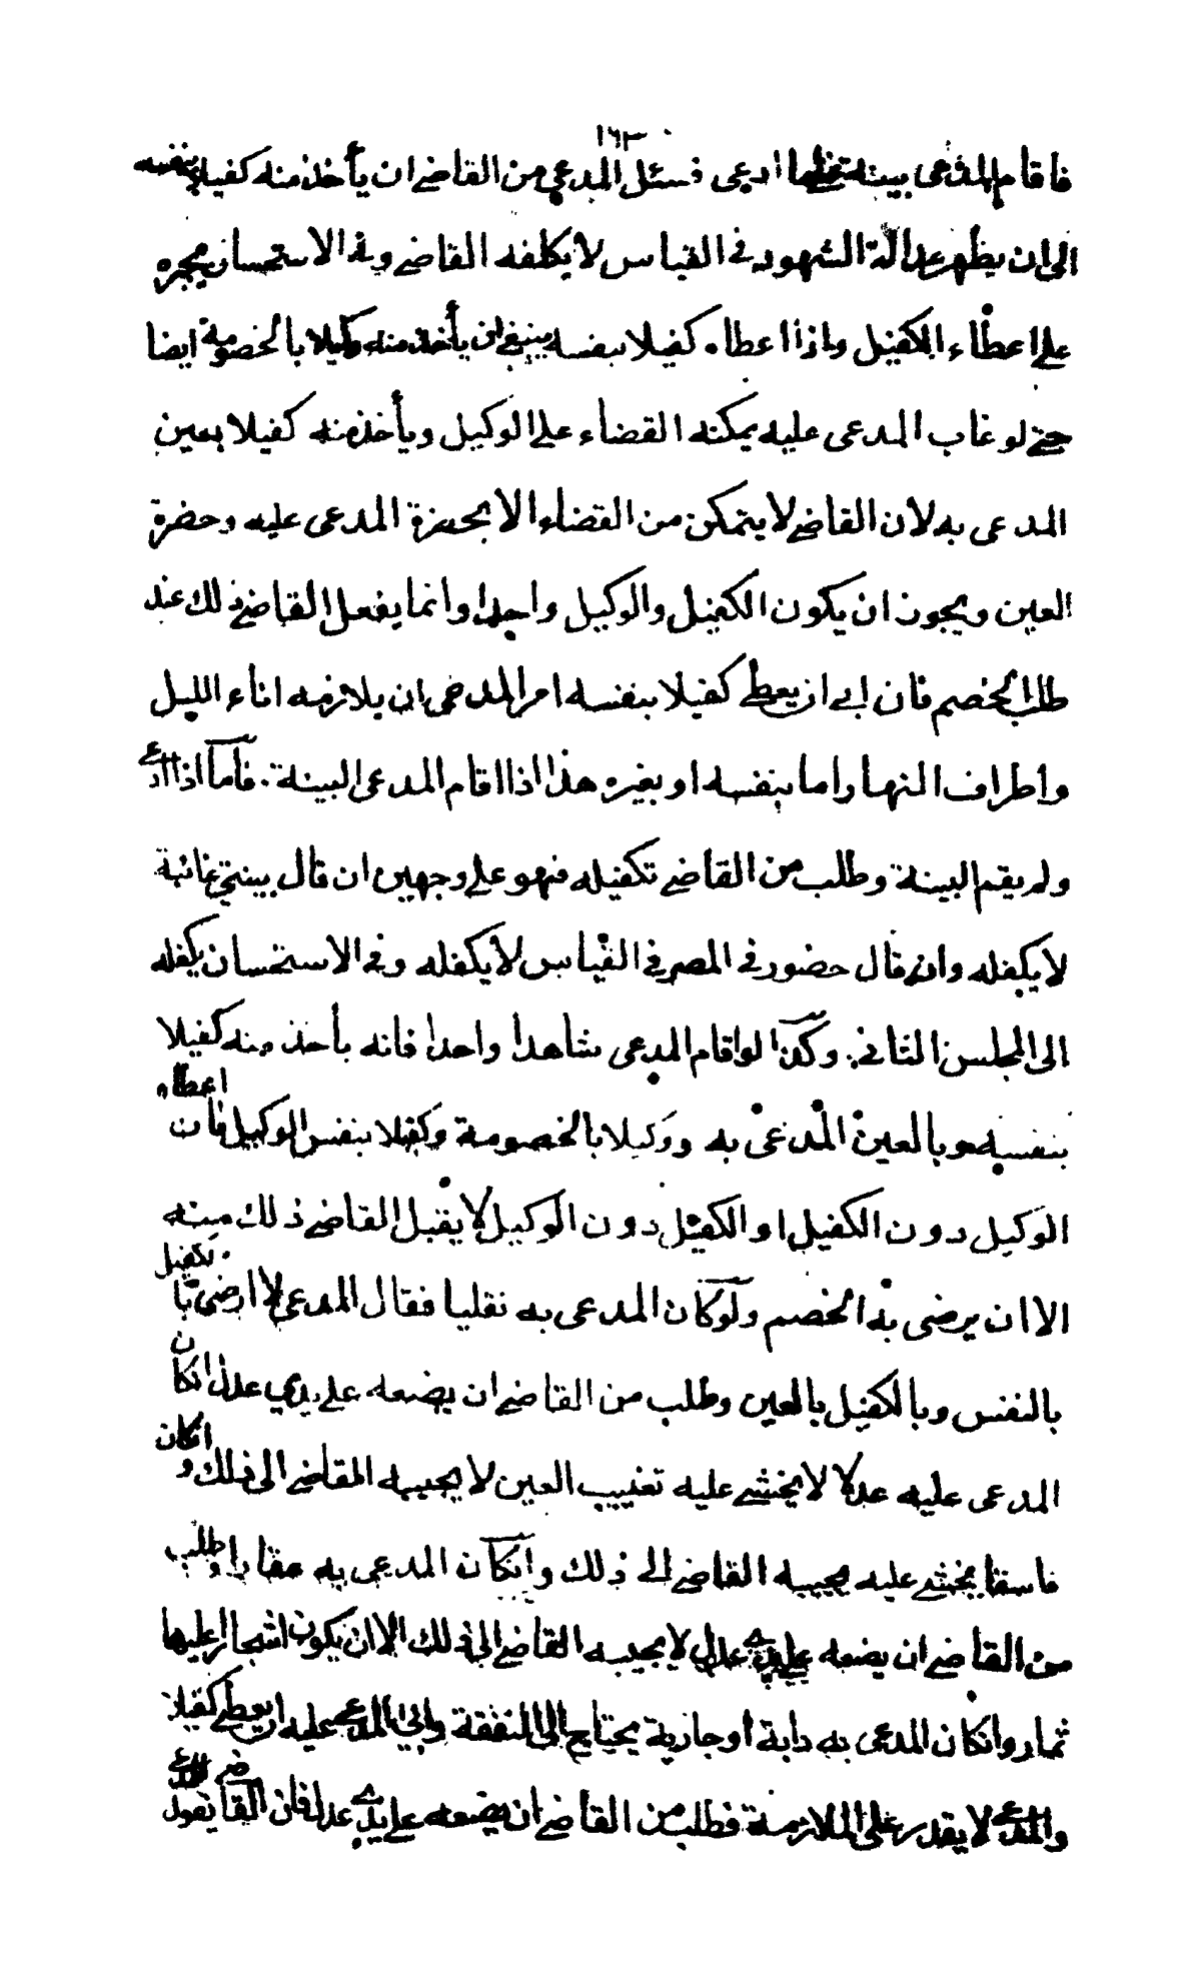 ١٦٣
فاقام المدعى بينة على ما ادعى فسئل المدعي من القاضي ان يأخذ منه كفيلا بنفسه
الى ان يظهر عدالة الشهود في القياس لا يكلفه القاضي وفي الاستحسان يجبره
على اعطاء الكفيل واذا اعطاه كفيلا بنفسه ينبغي ان يأخذ منه وكيلا بالخصومة ايضا
حتى لو غاب المدعى عليه يمكنه القضاء على الوكيل ويأخذ منه كفيلا بعين
المدعى به لان القاضي لا يتمكن من القضاء الا بحضرة المدعى عليه وحضرة
العين ويجوز ان يكون الكفيل والوكيل واحدا وانما يفعل القاضي ذلك عند
طلب الخصم فان ابى ان يعطي كفيلا بنفسه امر المدعى ان يلازمه اناء الليل
واطراف النهار اما بنفسه او بغيره هذا اذا اقام المدعى البينة . فاما اذا ادعى
ولم يقم البينة وطلب من القاضي تكفيله فهو على وجهين ان قال بينتي غائبة
لا يكفله وان قال حضور في المصر في القياس لا يكفله وفي الاستحسان يكفله
الى المجلس الثاني . وكذا لو اقام المدعى شاهدا واحدا فانه يأخذ منه كفيلا
بنفسه وبالعين المدعى به ووكيلا بالخصومة وكفيلا بنفس الوكيل فان اعطاه
الوكيل دون الكفيل او الكفيل دون الوكيل لا يقبل القاضي ذلك منه
الا ان يرضى به الخصم ولو كان المدعى به نقليا فقال المدعى لا ارضى بتكفيل
بالنفس وبالكفيل بالعين وطلب من القاضي ان يضعه على يدي عدل ان كان
المدعى عليه عدلا لا يخشى عليه تغييب العين لا يجيبه القاضي الى ذلك وان كان
فاسقا يخشى عليه يجيبه القاضي الى ذلك وان كان المدعى به عقارا وطلب
من القاضي ان يضعه على يدي عدل لا يجيبه القاضي الى ذلك الا ان يكون اشجارا عليها
ثمار وان كان المدعى به دابة او جارية يحتاج الى النفقة وابى المدعى عليه ان يعطي كفيلا
والمدعي لا يقدر على الملازمة فطلب من القاضي ان يضعه على يدي عدل فان القاضي يقول للمدعي